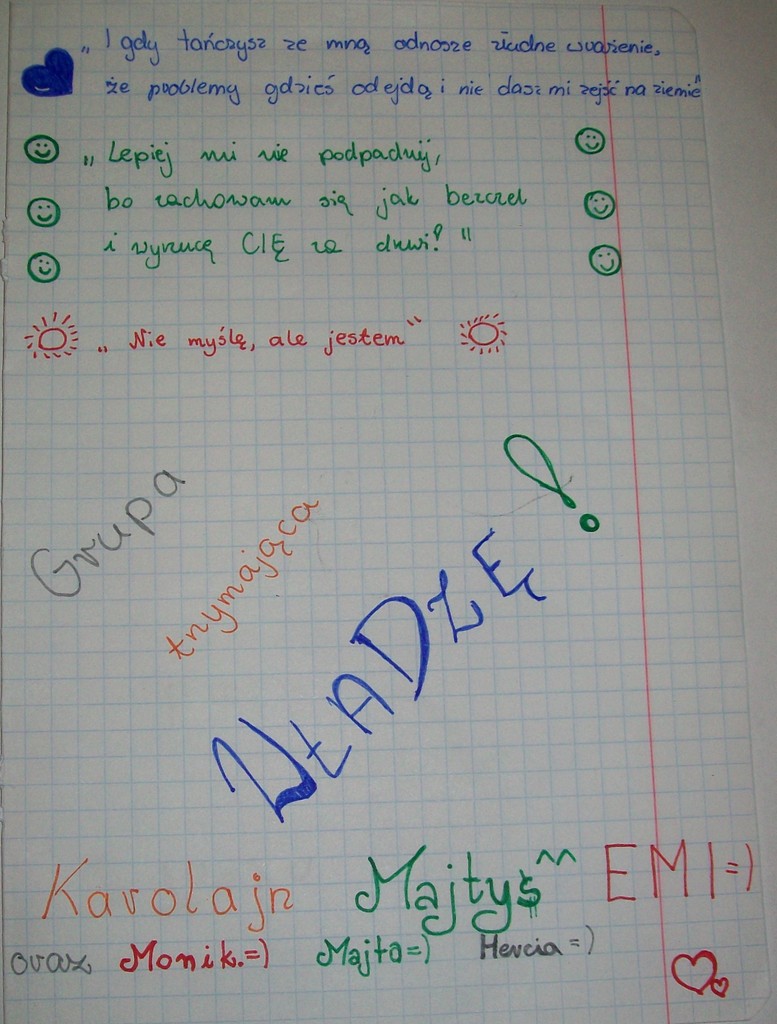 „ I gdy tańczysz ze mną odnosze złudne wrażenie,
że problemy gdzieś odejdą i nie dasz mi zejść na ziemie"
„ Lepiej mi nie podpadnij,
bo zachowam się jak bezczel
i wyrzucę CIĘ za drzwi! "
„ Nie myślę, ale jestem "
Grupa
trzymająca
WŁADZĘ !
Karolajn Majtyś^^ EMI=)
oraz Monik.=) Majta=) Hercia=)